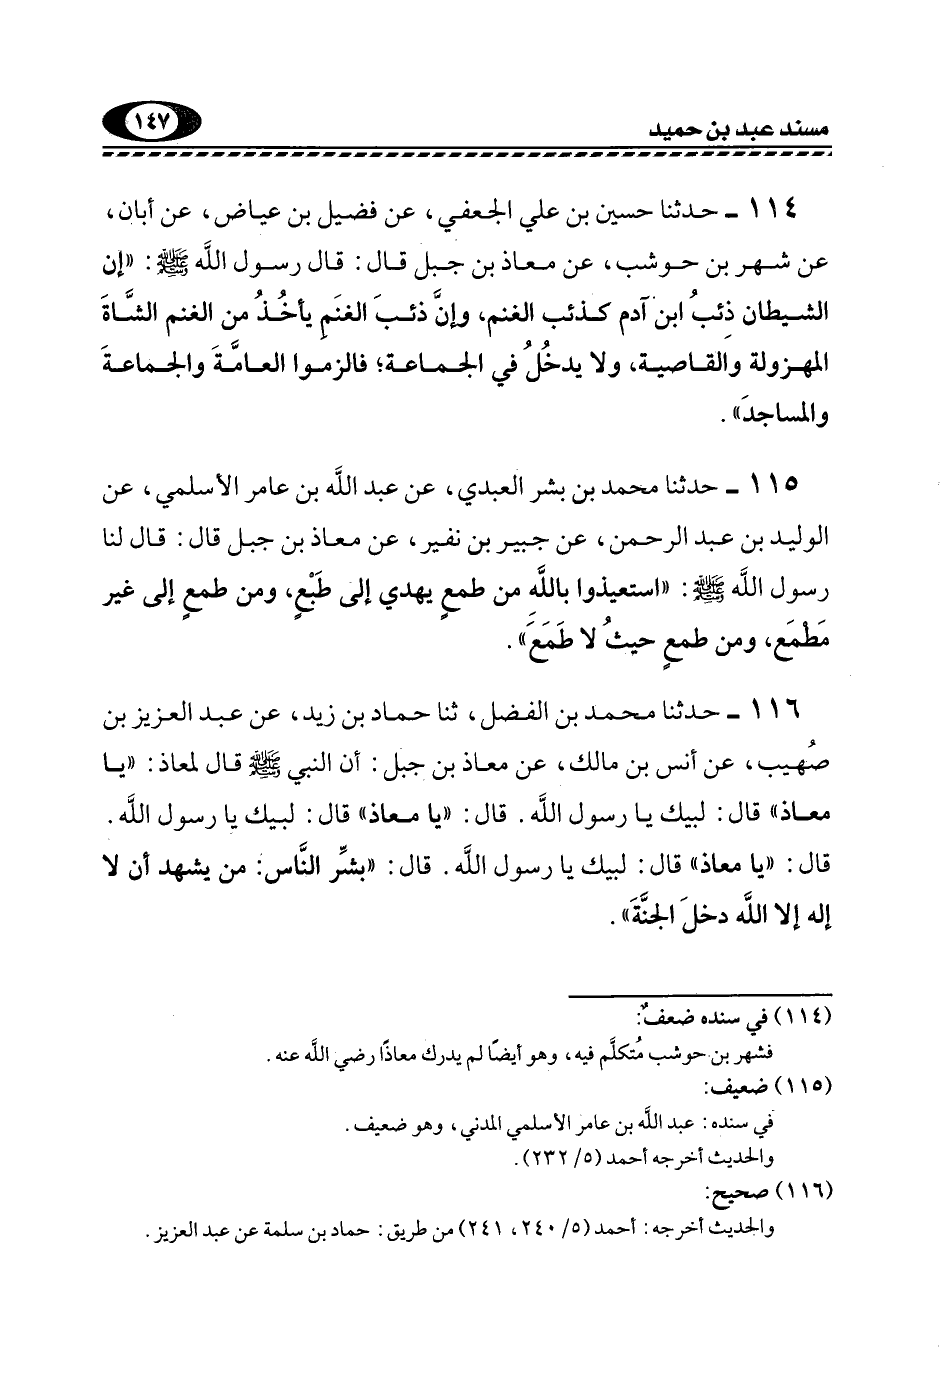 مسند عبد بن حميد
١٤٧
١١٤ ـ حدثنا حسين بن علي الجعفي، عن فضيل بن عياض، عن أبان،
عن شهر بن حوشب، عن معاذ بن جبل قال: قال رسول الله ﷺ: «إن
الشيطان ذئبُ ابن آدم كذئب الغنم، وإنَّ ذئبَ الغنَمِ يأخُذُ من الغنم الشَّاةَ
المهزولة والقاصيةِ، ولا يدخُلُ في الجماعة؛ فالزموا العامَّةَ والجماعةَ
والمساجدَ».
١١٥ ـ حدثنا محمد بن بشر العبدي، عن عبد اللَّه بن عامر الأسلمي، عن
الوليد بن عبد الرحمن، عن جبير بن نفير، عن معاذ بن جبل قال: قال لنا
رسول اللَّه ﷺ: «استعيذوا باللَّهِ من طمعٍ يهدي إلى طَبْعٍ، ومن طمعٍ إلى غير
مَطْمَعٍ، ومن طمعٍ حيثُ لا طَمَعَ».
١١٦ ـ حدثنا محمد بن الفضل، ثنا حماد بن زيد، عن عبد العزيز بن
صُهيب، عن أنس بن مالك، عن معاذ بن جبل: أن النبي ﷺ قال لمعاذ: «يا
معاذ» قال: لبيك يا رسول اللَّه. قال: «يا معاذ» قال: لبيك يا رسول اللَّه.
قال: «يا معاذ» قال: لبيك يا رسول اللَّه. قال: «بشِّر النَّاس: من يشهد أن لا
إله إلا اللَّه دخلَ الجنَّةَ».
(١١٤) في سنده ضعفٌ:
فشهر بن حوشب مُتكلَّم فيه، وهو أيضًا لم يدرك معاذًا رضي اللَّه عنه.
(١١٥) ضعيف:
في سنده: عبد اللَّه بن عامر الأسلمي المدني، وهو ضعيف.
والحديث أخرجه أحمد (٥/ ٢٣٢).
(١١٦) صحيح:
والحديث أخرجه: أحمد (٥/ ٢٤٠، ٢٤١) من طريق: حماد بن سلمة عن عبد العزيز.